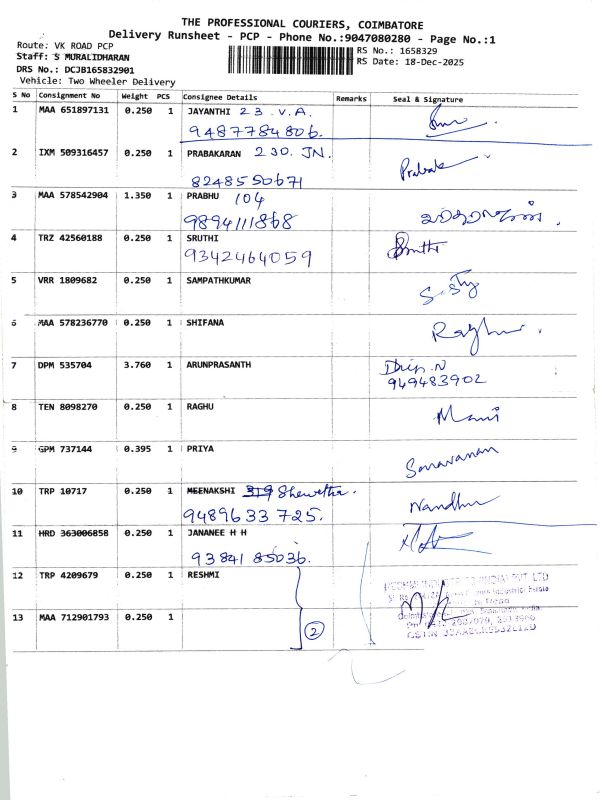 THE PROFESSIONAL COURIERS, COIMBATORE
Delivery Runsheet - PCP - Phone No.:9047080280 - Page No.:1
Route: VK ROAD PCP
Staff: S MURALIDHARAN
DRS No.: DCJB165832901
Vehicle: Two Wheeler Delivery
RS No.: 1658329
RS Date: 18-Dec-2025
S No Consignment No Weight PCS Consignee Details Remarks Seal & Signature
1 MAA 651897131 0.250 1 JAYANTHI 23 V.A.
9487784806.
2 IXM 509316457 0.250 1 PRABAKARAN 230. JN.
8248550671
Prabak
3 MAA 578542904 1.350 1 PRABHU 104
9894111868
4 TRZ 42560188 0.250 1 SRUTHI
9342464059
Sruthi
5 VRR 1809682 0.250 1 SAMPATHKUMAR
6 MAA 578236770 0.250 1 SHIFANA
Raghu
7 DPM 535704 3.760 1 ARUNPRASANTH
949483902
8 TEN 8098270 0.250 1 RAGHU
Mani
9 GPM 737144 0.395 1 PRIYA
Saravanan
10 TRP 10717 0.250 1 MEENAKSHI 319 Shewetha.
9489633725.
Nandhu
11 HRD 363006858 0.250 1 JANANEE H H
9384185036.
12 TRP 4209679 0.250 1 RESHMI
13 MAA 712901793 0.250 1
2